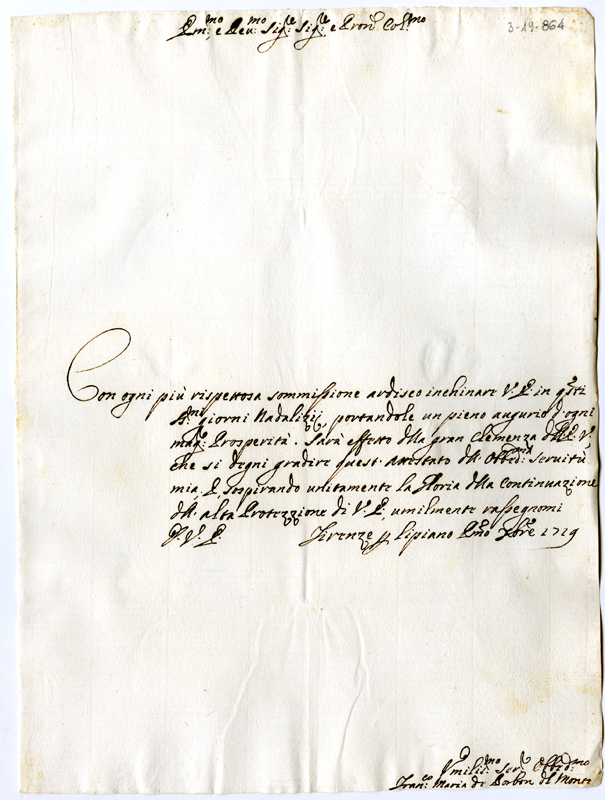 Em:mo e Reu:mo Sig:re Sig:re e Pron: Col:mo
3-19-864
Con ogni più rispettosa sommissione ardisco inchinare V.E. in q:sti
S:mi giorni Nadalizij, portandole un pieno augurio d'ogni
mag: Prosperità. Sarà effetto dlla gran Clemenza dll'E.V.
che si degni gradire quest'Attestato dll'Obbd:ma seruitù
mia, E, sospirando unitamente la Gloria dlla Continuazione
dll'alta Protezzione di V.E., umilmente rassegnomi
D.V.E. Firenze p Lipiano P:mo Xbre 1719
Vmilis:mo Ser:e Obbd:mo
Fran:co Maria di Borbon dl Monte